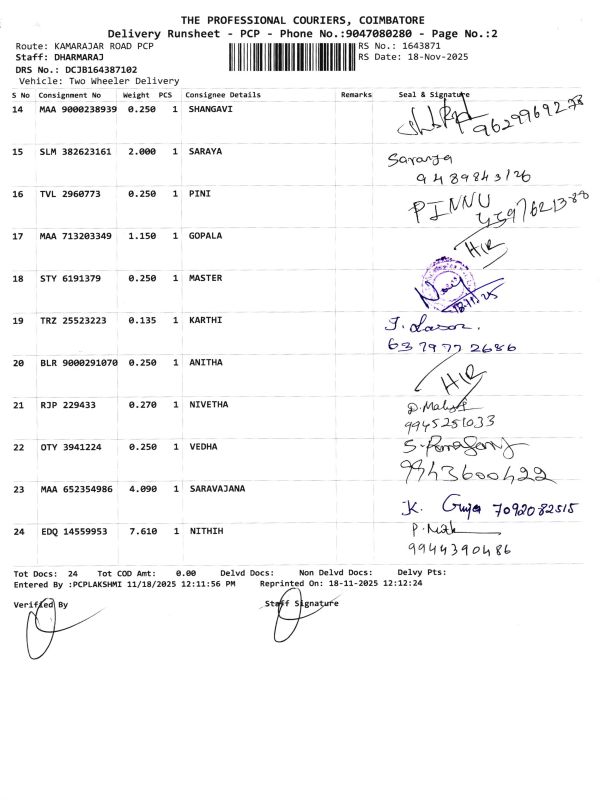 THE PROFESSIONAL COURIERS, COIMBATORE
Delivery Runsheet - PCP - Phone No.:9047080280 - Page No.:2
Route: KAMARAJAR ROAD PCP RS No.: 1643871
Staff: DHARMARAJ RS Date: 18-Nov-2025
DRS No.: DCJB164387102
Vehicle: Two Wheeler Delivery
S No Consignment No Weight PCS Consignee Details Remarks Seal & Signature
14 MAA 9000238939 0.250 1 SHANGAVI 9629969278
15 SLM 382623161 2.000 1 SARAYA Saranya
9489843126
16 TVL 2960773 0.250 1 PINI PINNU
17 MAA 713203349 1.150 1 GOPALA H/R
18 STY 6191379 0.250 1 MASTER 18/11/25
19 TRZ 25523223 0.135 1 KARTHI
6379772686
20 BLR 9000291070 0.250 1 ANITHA H/R
21 RJP 229433 0.270 1 NIVETHA
9945251033
22 OTY 3941224 0.250 1 VEDHA
9943600422
23 MAA 652354986 4.090 1 SARAVAJANA K. 7092082515
24 EDQ 14559953 7.610 1 NITHIH
9944390486
Tot Docs: 24 Tot COD Amt: 0.00 Delvd Docs: Non Delvd Docs: Delvy Pts:
Entered By :PCPLAKSHMI 11/18/2025 12:11:56 PM Reprinted On: 18-11-2025 12:12:24
Verified By Staff Signature